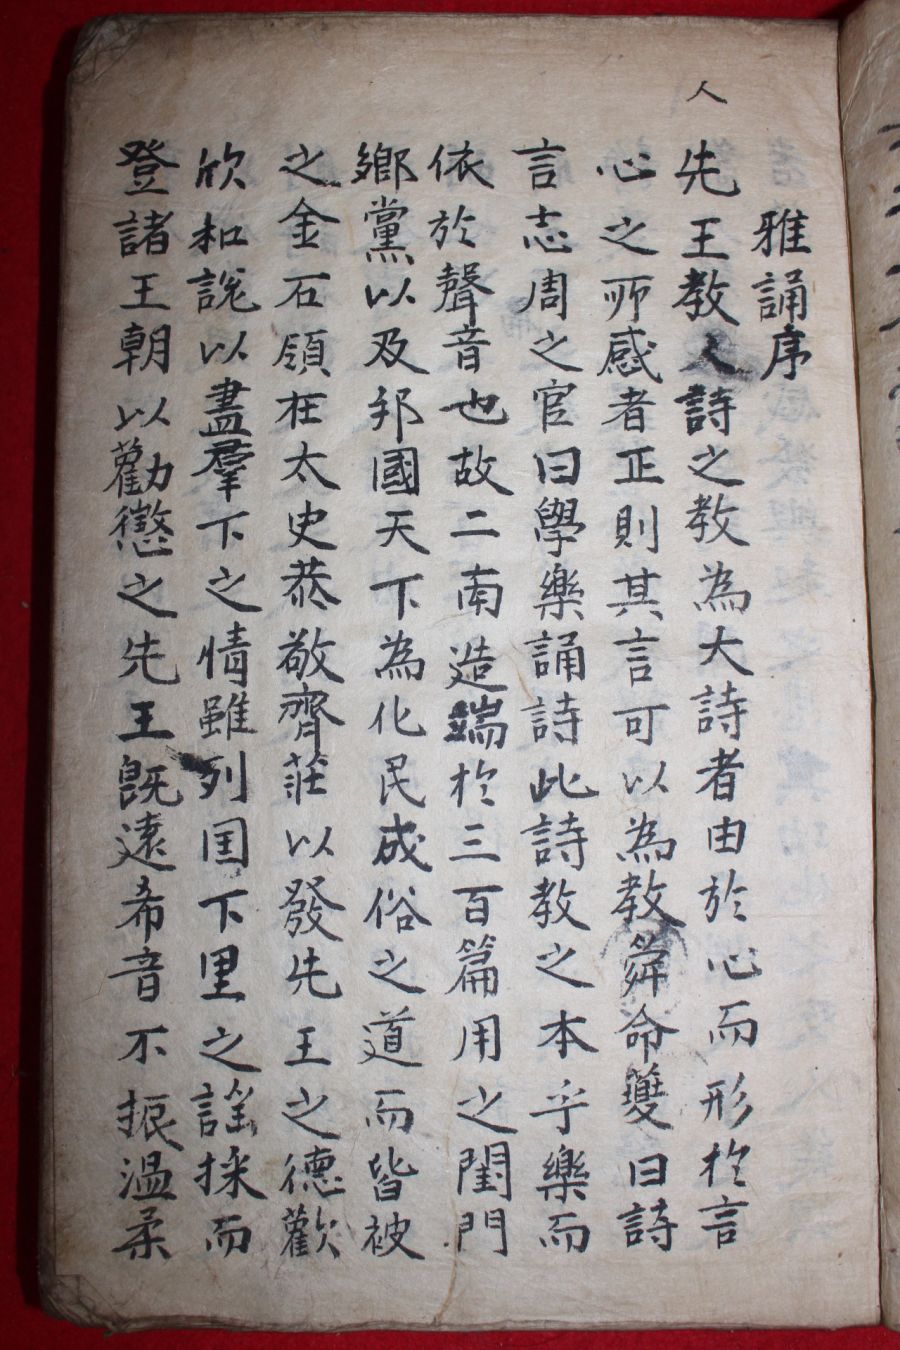 人
雅誦序
先王教人詩之教為大詩者由於心而形於言
心之所感者正則其言可以為教舜命夔曰詩
言志周之官曰學樂誦詩此詩教之本乎樂而
依於聲音也故二南造端於三百篇用之閨門
鄉黨以及邦國天下為化民成俗之道而皆被
之金石領在太史恭敬齊莊以發先王之德歡
欣和說以盡羣下之情雖列国下里之謠採而
登諸王朝以勸懲之先王旣遠希音不振溫柔